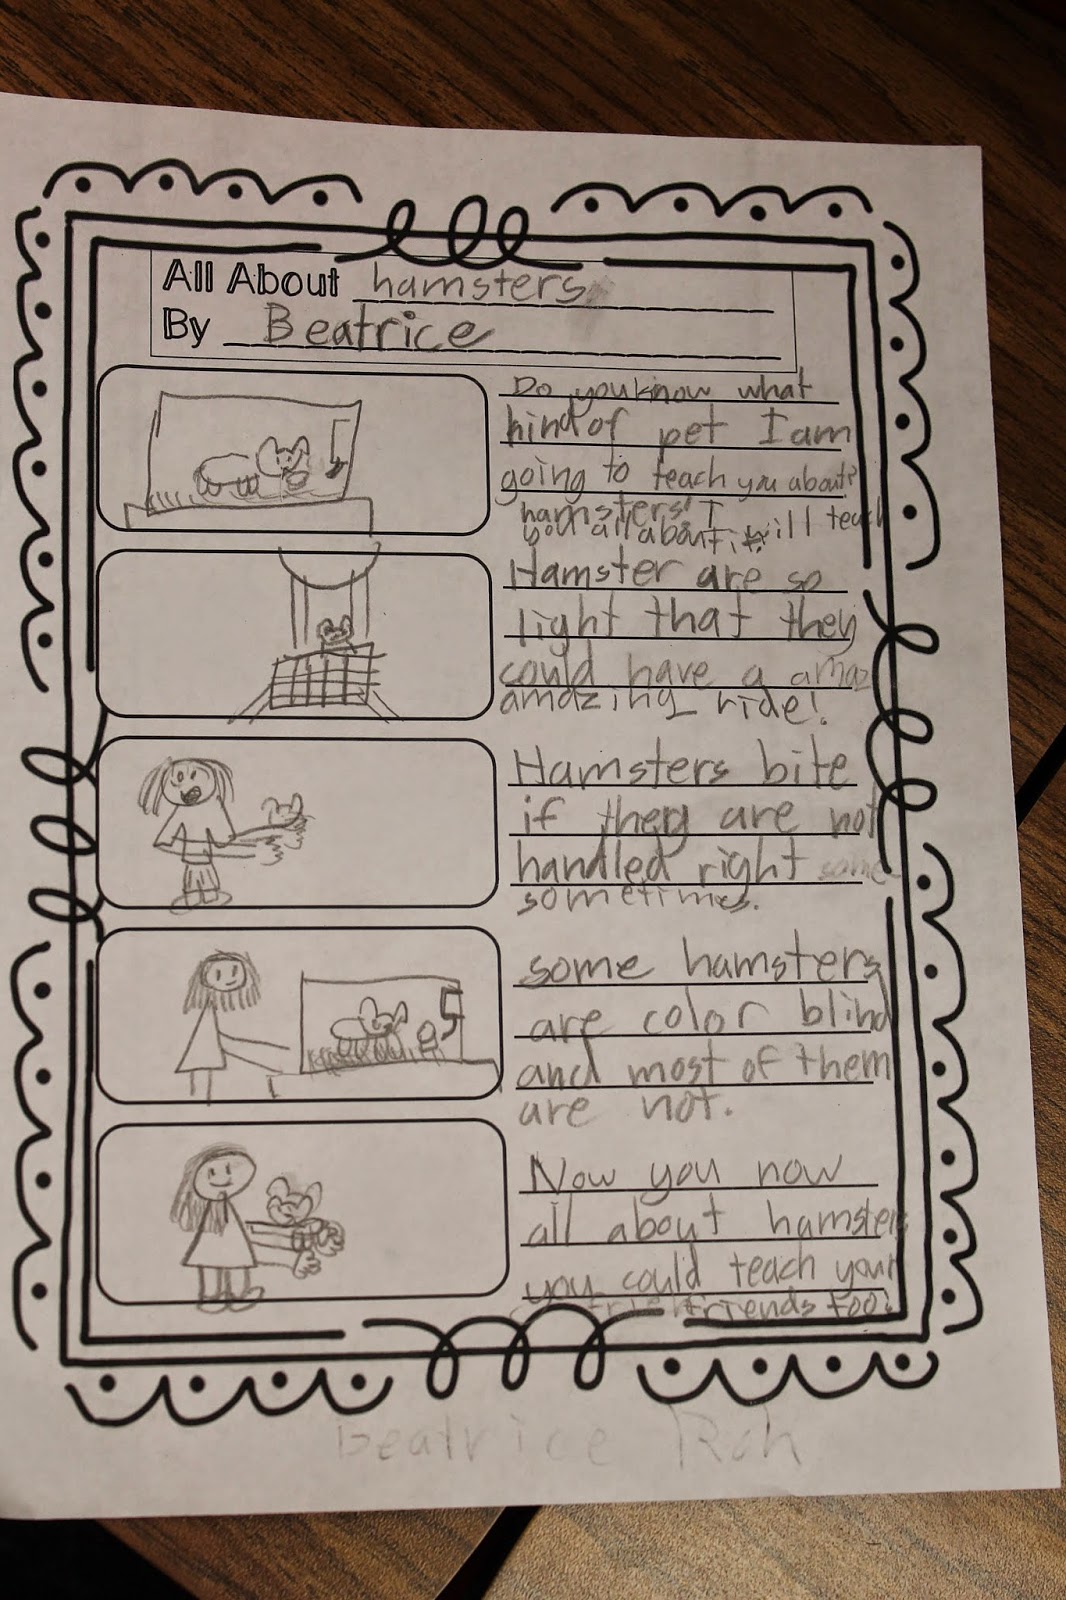 All About hamsters
By Beatrice
Do you know what
kind of pet I am
going to teach you about?
hamsters! I
will teach
you all about it.
Hamster are so
light that they
could have a amaz
amazing ride!
Hamsters bite
if they are not
handled right some
sometimes.
some hamsters
are color blind
and most of them
are not.
Now you now
all about hamsters
you could teach your
friends too!
Beatrice